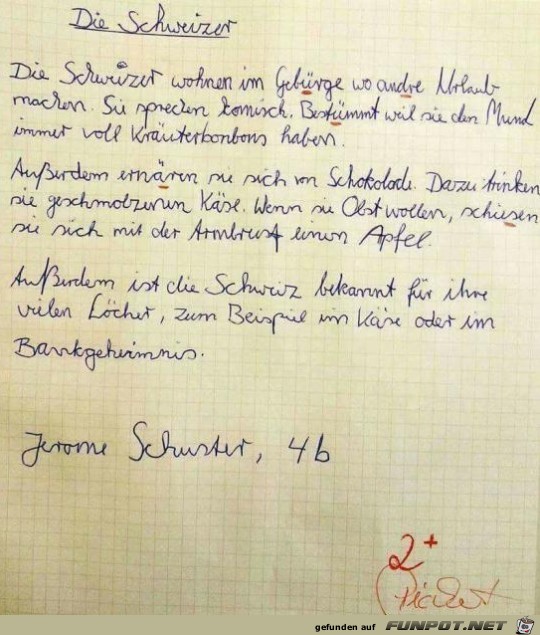 Die Schweizer
Die Schweizer wohnen im Gebürge wo andre Urlaub
machen. Sie sprechen komisch. Bestümmt weil sie den Mund
immer voll Kräuterbonbons haben.
Außerdem ernären sie sich von Schokolade. Dazu trinken
sie geschmolzenen Käse. Wenn sie Obst wollen, schiesen
sie sich mit der Armbrust einen Apfel.
Außerdem ist die Schweiz bekannt für ihre
vielen Löcher, zum Beispiel im Käse oder im
Bankgeheimnis.
Jerome Schuster, 4b
2+
gefunden auf FUNPOT.NET